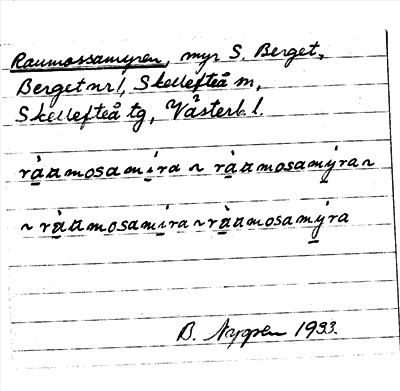 Raumossamyren, myr S. Berget,
Berget nr 1, Skellefteå m,
Skellefteå tg, Västerb. l.
ràamosamira ~ ràamosamýra ~
~ ràamosamira ~ ràamosamýra
B. Nygren 1933.